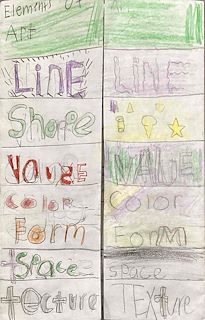 Elements Of
Art
LiNE
Shape
VaLUE
color
Form
Space
tecture
LINE
VALUE
Color
FORM
space
TEXture